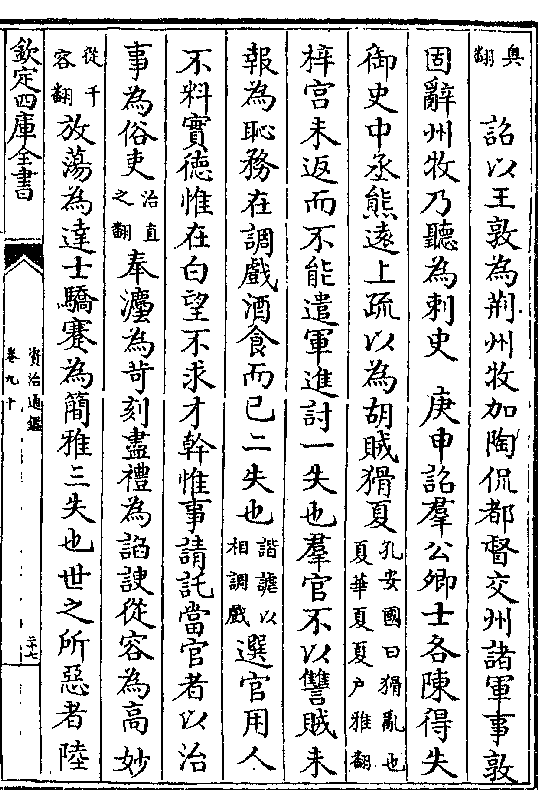 奥翻　詔以王敦為荆州牧加陶侃都督交州諸軍事敦
固辭州牧乃聽為刺史　庚申詔羣公卿士各陳得失
御史中丞熊遠上疏以為胡賊猾夏孔安國曰猾亂也夏華夏夏户雅翻
梓宫未返而不能遣軍進討一失也羣官不以讐賊未
報為恥務在調戲酒食而已二失也諧謔以相調戲選官用人
不料實德惟在白望不求才幹惟事請託當官者以治
事為俗吏治直之翻奉灋為苛刻盡禮為諂諛從容為高妙
從千容翻放蕩為達士驕蹇為簡雅三失也世之所惡者陸
欽定四庫全書
資治通鑑
卷九十
二十七